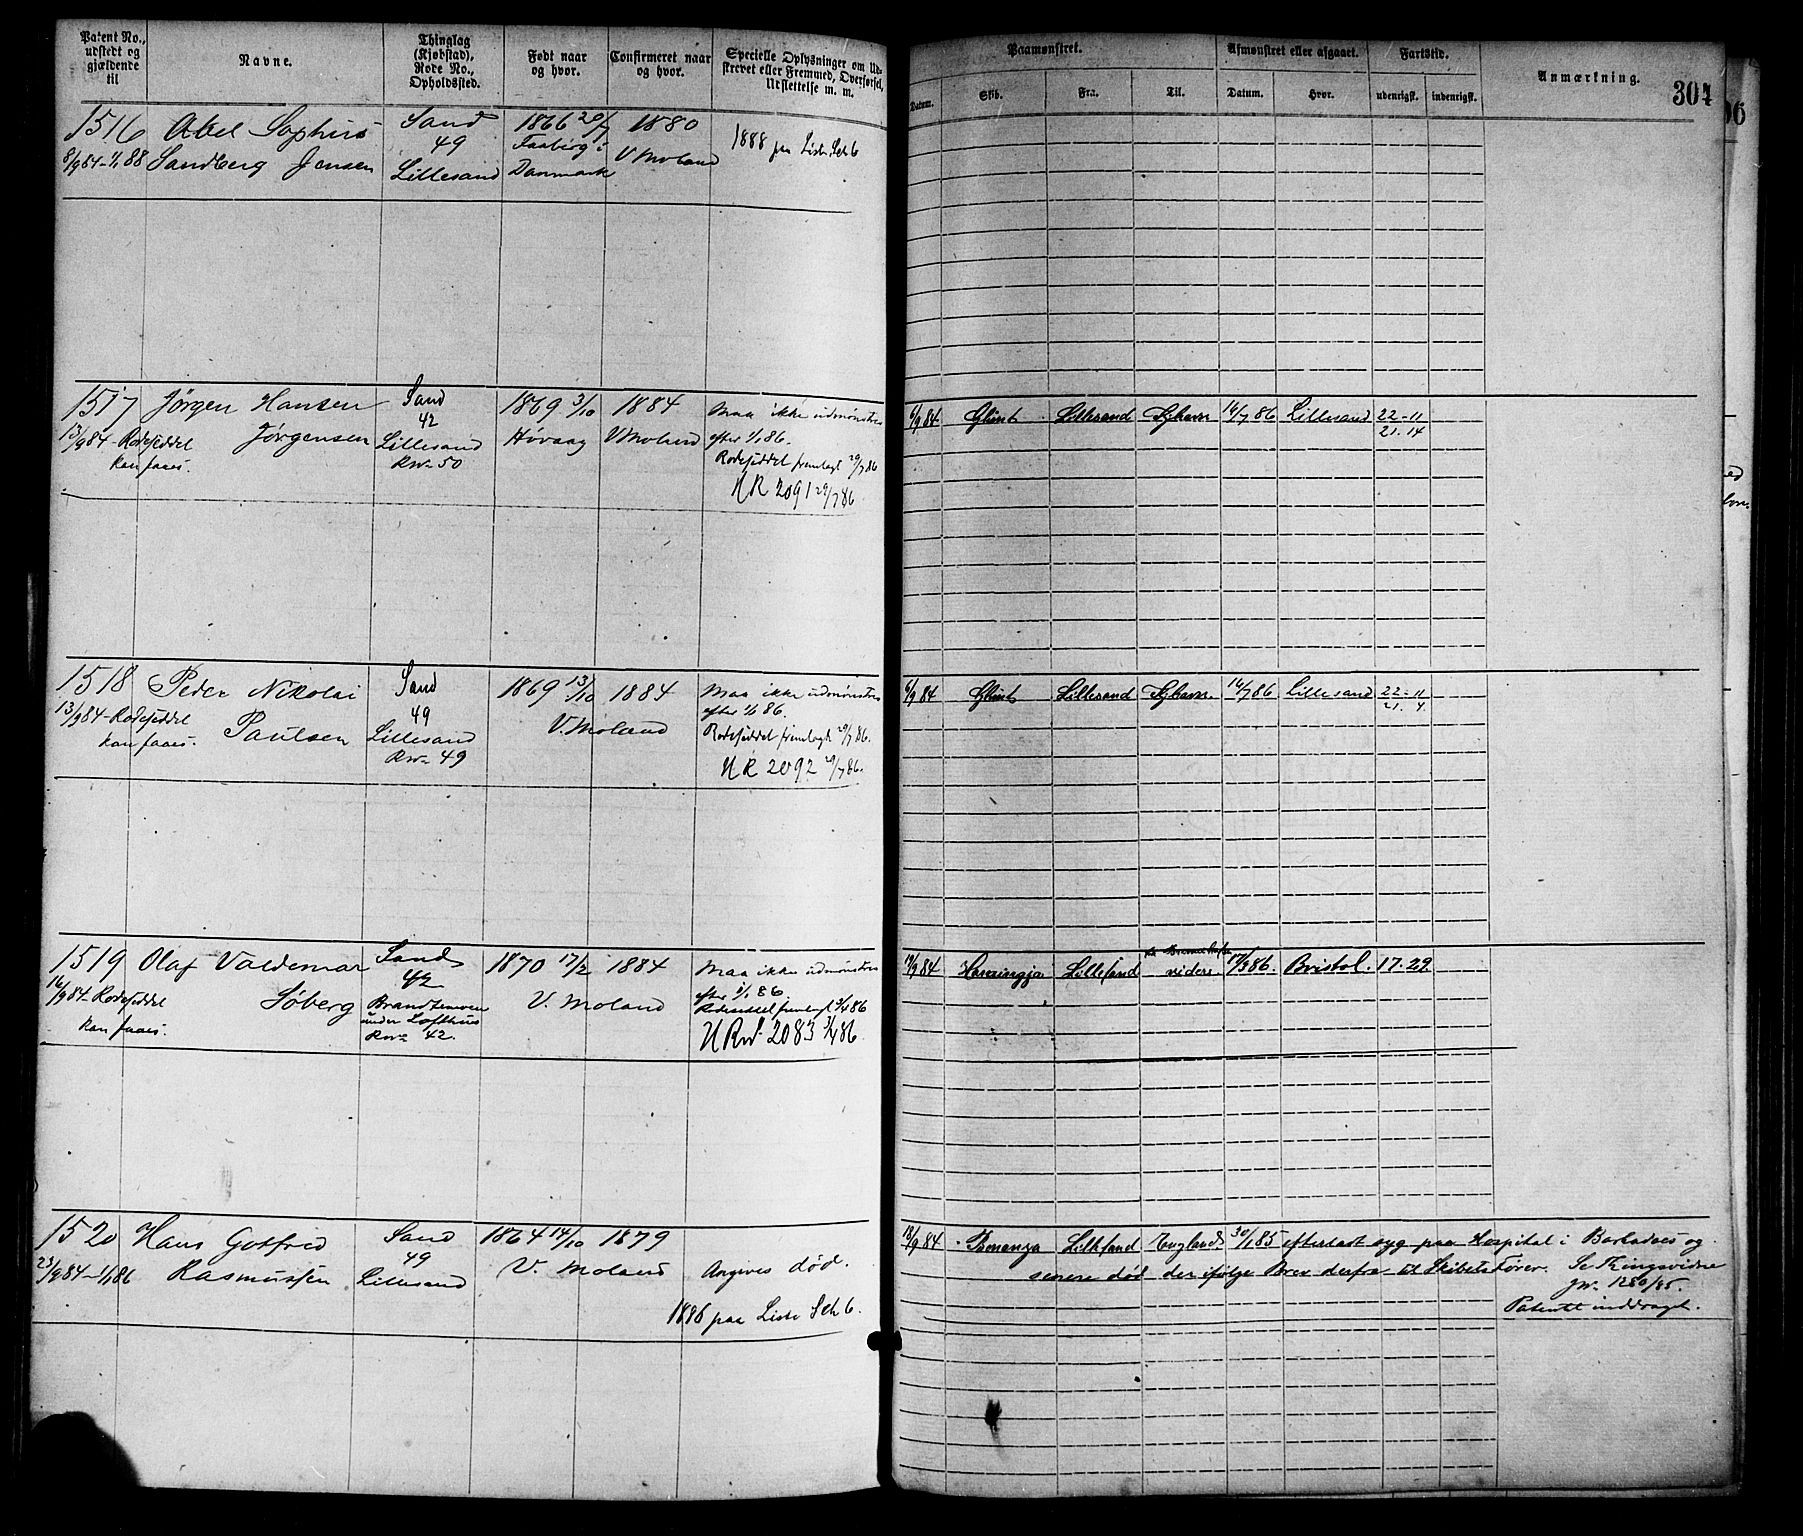 Patent No., udstedt og gjældende til
Navne.
Thinglag (Kjøbstad), Rode No., Opholdssted.
Født naar og hvor.
Confirmeret naar og hvor.
Specielle Oplysninger om Udskrevet eller Fremmed, Overførsel, Udslettelse m. m.
Paamønstret.
Datum.
Skib.
Fra.
Til.
Afmønstret eller afgaaet.
Datum.
Hvor.
Fartstid.
udenrigsk.
indenrigsk.
Anmærkning.
304
1516
8/9 84-1/1 88
Abel Sophus
Sandberg Jensen
Sand
49
Lillesand
1866 20/7
Faaborg i
Danmark
1880
V Moland
1888 paa Liste Sch 6
1517
13/9 84-Rodeseddel
kan faaes.
Jørgen Hansen
Jørgensen
Sand
42
Lillesand
Rno 50
1869 3/10
Høvaag
1884
V Moland
Maa ikke udmønstres
efter 1/1 86.
Rodeseddel fremlagt 29/7 86
UR 2091 29/7 86
6/9 84
Glimt
Lillesand
Kjøbhavn
16/7 86
Lillesand
22-11
21.14
1518
13/9 84-Rodeseddel
kan faaes.
Peder Nikolai
Paulsen
Sand
49
Lillesand
Rno 49
1869 13/10
V. Moland
1884
Maa ikke udmønstres
efter 1/1 86.
Rodeseddel fremlagt 29/7 86.
UR 2092 29/7 86.
6/9 84
Glimt
Lillesand
Kjøbhavn
16/7 86
Lillesand
22-11
21.4.
1519
16/9 84-Rodeseddel
kan faaes.
Olaf Valdemar
Søberg
Sand
42
under Lofthus
Rno 42.
1870 17/2
V. Moland
1884
Maa ikke udmønstres
efter 1/1 86
Rodeseddel fremlagt 3/4 86
URno 2083 3/4 86
17/9 84
Lillesand
videre
17/3 86.
Bristol.
17.29
1520
23/9 84-1/1 86
Hans Gotfried
Rasmussen
Sand
49
Lillesand
1864 14/10
V. Moland
1879
Angives død.
1886 paa Liste Sch 6.
18/9 84
Bonanza
Lillesand
England
30/1 85 efterladt syg paa Hospital i Barbadoes og
senere død der ifølge Brev derfra til Skibets Fører. Se Thingsvidne
Jno 1280/85.
Patentet inddraget.